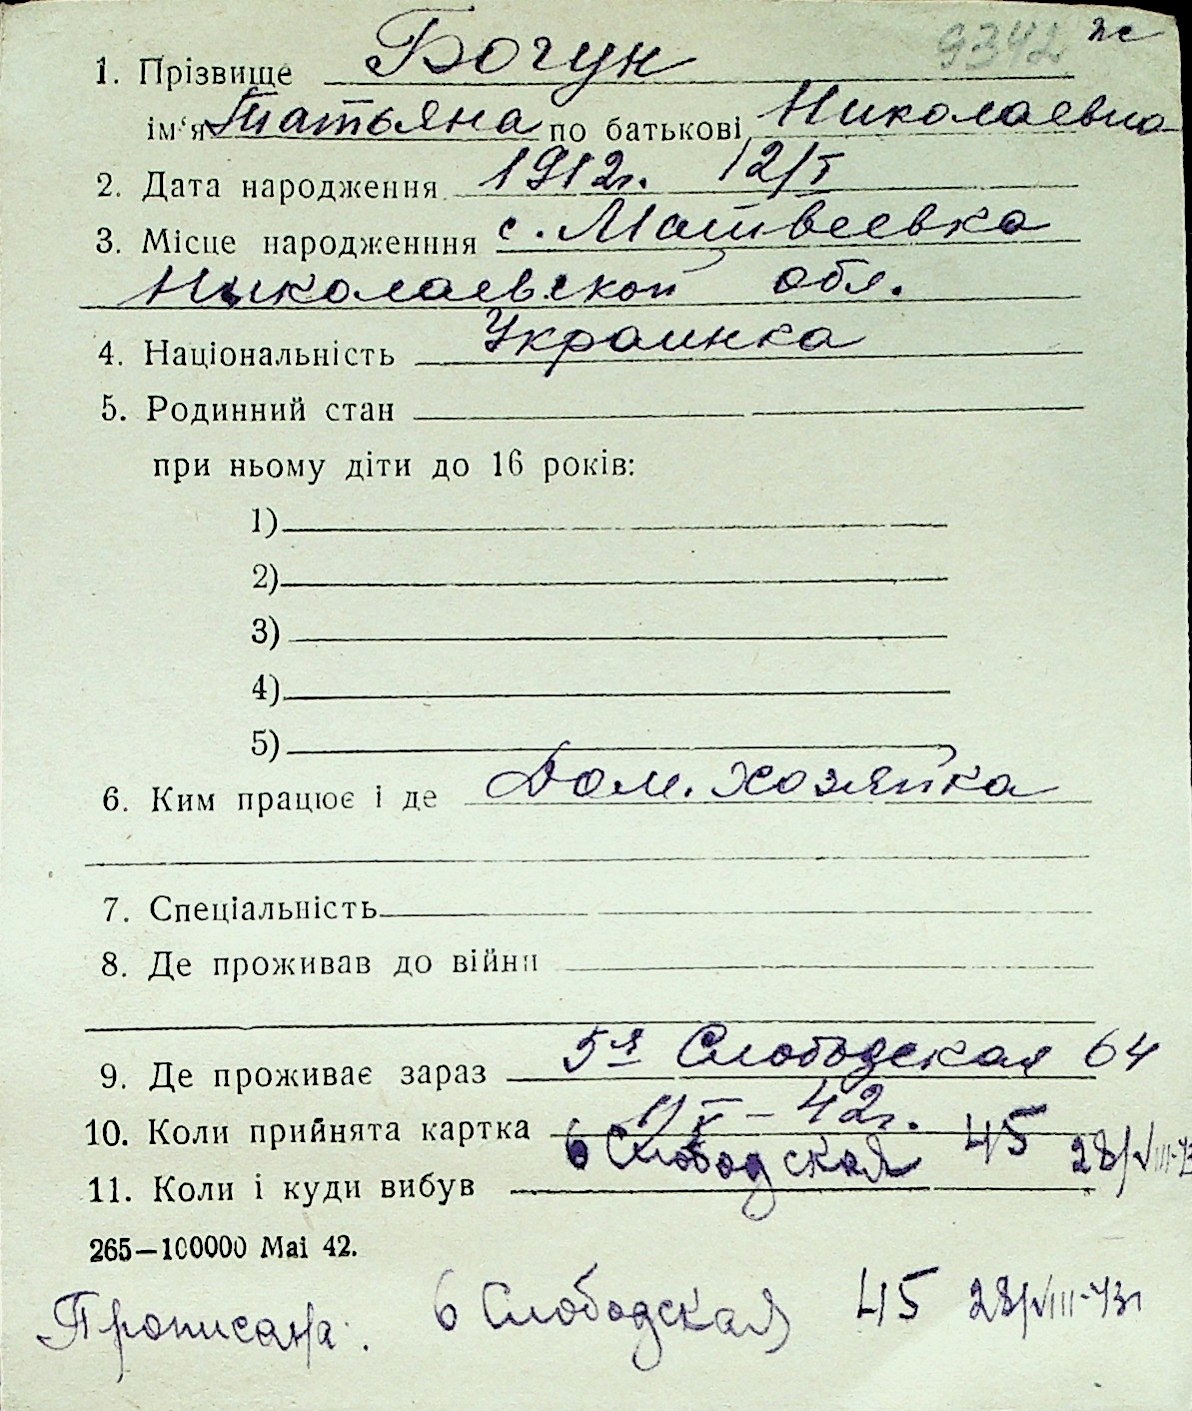 9342 ж
1. Прізвище Богун
ім‘я Татьяна по батькові Николаевна
2. Дата народження 1912г. 12/I
3. Місце народженння с. Матвеевка
Николаевской обл.
4. Національність Украинка
5. Родинний стан
при ньому діти до 16 років:
1)
2)
3)
4)
5)
6. Ким працює і де Дом. хозяйка
7. Спеціальність
8. Де проживав до війни
9. Де проживає зараз 5я Слободская 64
10. Коли прийнята картка 42г.
6 Слободская 45 28/VIII-43
11. Коли і куди вибув
265—100000 Mai 42.
Прописана: 6 Слободская 45 28/VIII-43г